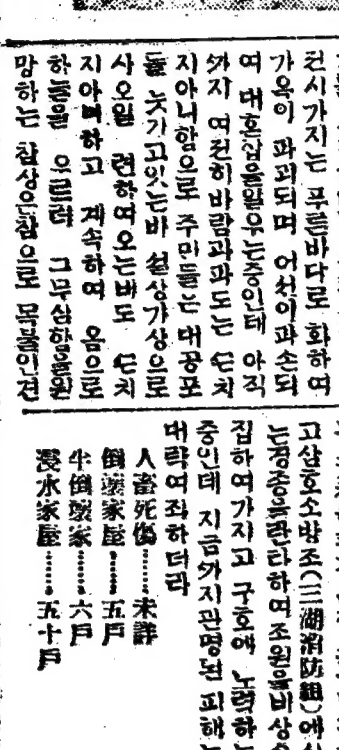 전시가지는 푸른바다로 화하여
가옥이 파괴되며 어선이파손되
여 대혼잡을일우는중인데 아직
까지 여전히바람과파도는 끈치
지아니함으로 주민들은 대공포
를 늣기고잇는바 설상가상으로
사오일 련하여오는비도 끈치
지아니하고 계속하여 옴으로
하늘을 우르러 그무심함을원
망하는 참상은참으로 목불인견
고삼호소방조(三湖消防組)에
는경종을란타하여조원을비상
집하여가지고 구호에 노력하
중인데 지금까지판명된 피해
대략여좌하더라
人畜死傷………未詳
倒壞家屋………五戶
半倒壞家………六戶
浸水家屋………五十戶